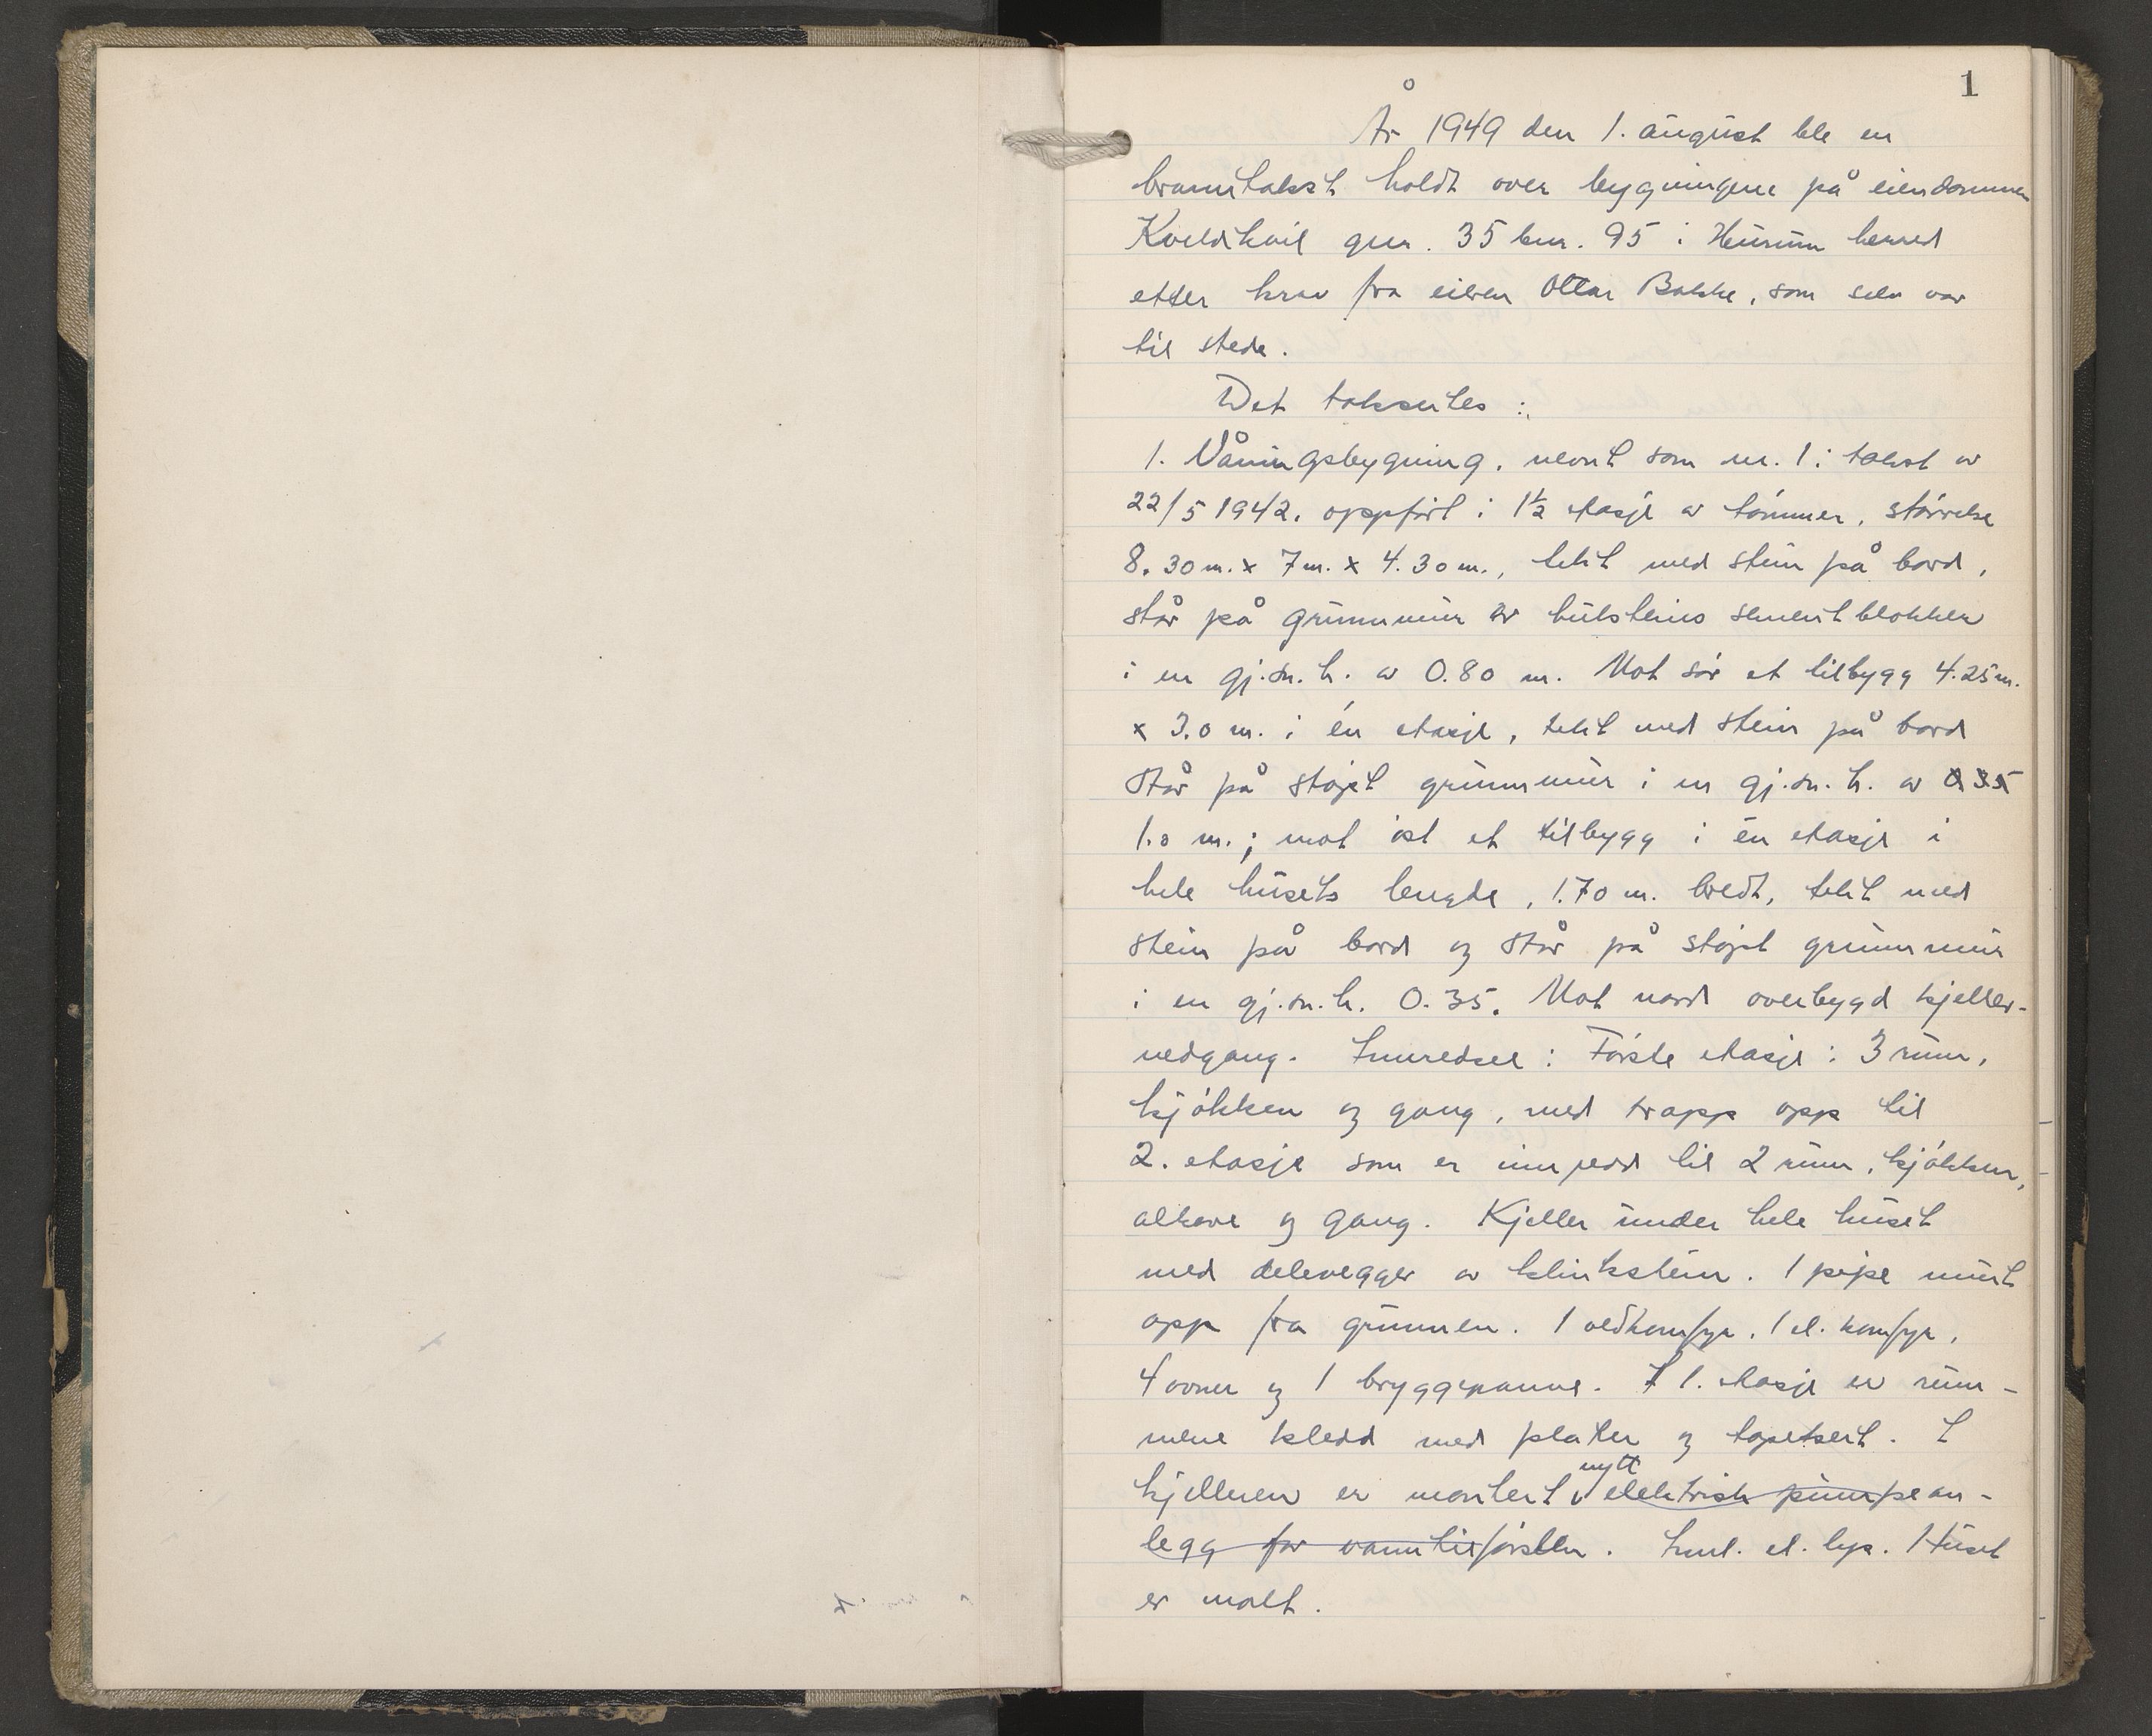 1
År 1949 den 1. august ble en
branntakst holdt over bygningene på eiendommen
Kveldhvil gnr. 35 bnr. 95 i Hurum herred
etter krav fra eieren Ottar Bakke, som selv var
til stede.
Det taksertes :
1. Våningsbygning, nevnt som nr. 1 i takst av
22/5 1942. oppført i 1½ etasje av tømmer, størrelse
8.30 m. x 7 m. x 4.30 m., tekt med stein på bord,
står på grunnmur av hulsteins sementblokker
i en gj.sn.h. av 0.80 m. Mot sør et tilbygg 4.25 m.
x 3.0 m. i én etasje, tekt med stein på bord
står på støpt grunnmur i en gj.sn.h. av 0.35
1.0 m.; mot øst et tilbygg i én etasje i
hele husets lengde, 1.70 m. bredt, tekt med
stein på bord og står på støpt grunnmur
i en gj.sn.h. 0.35. Mot nord overbygd kjeller-
nedgang. Innredsel : Første etasje : 3 rum,
kjøkken og gang, med trapp opp til
2. etasje som er innredd til 2 rum, kjøkken,
alkove og gang. Kjeller under hele huset
med delevegger av klinkstein. 1 pipe murt
opp fra grunnen. 1 vedkomfyr, 1 el. komfyr,
4 ovner og 1 bryggepanne. I 1. etasje er rum-
mene kledd med plater og tapetsert. I
nytt
kjelleren er montert elektrisk pumpean-
legg for vanntilførslen. Innl. el. lys. Huset
er malt.